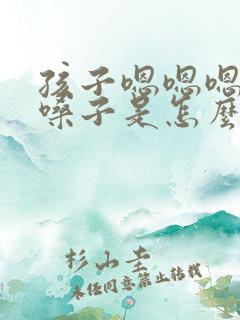 孩子嗯嗯嗯
嗓子是怎麼
杉山圭
未经同意禁止转载